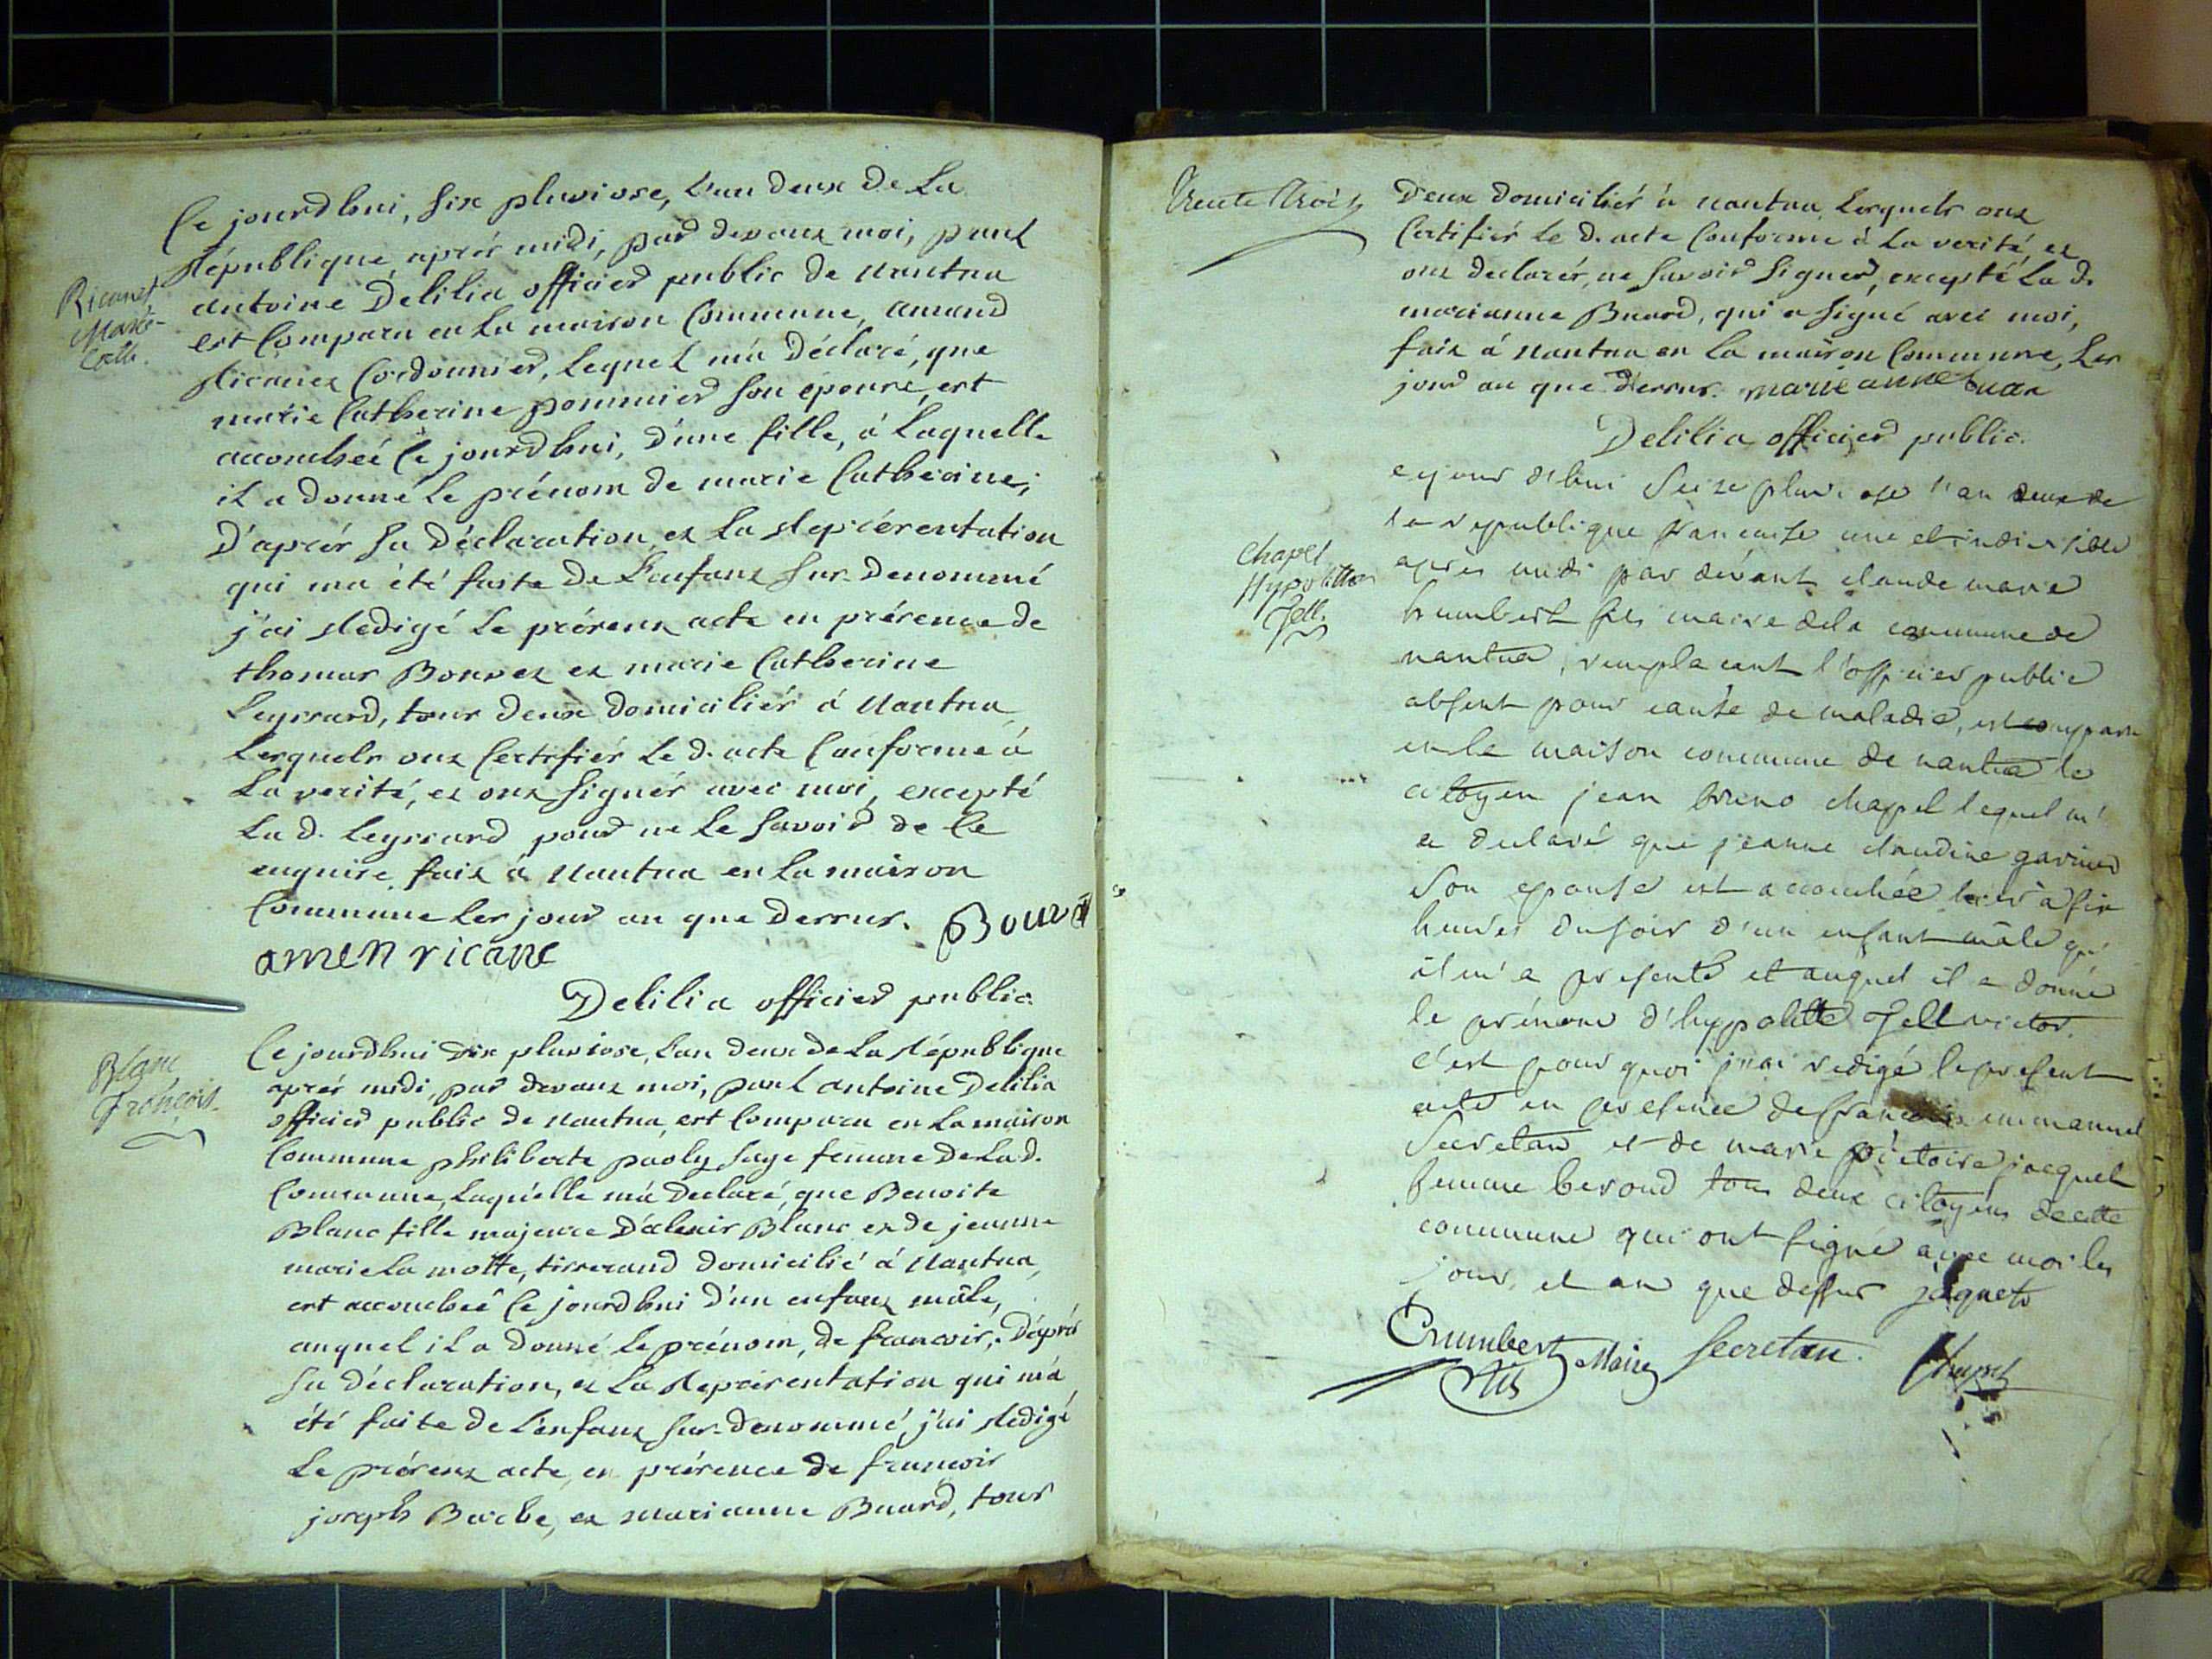 Ce jourdhui, six pluviose, l'an deux de La
République, après midi, par devant moi, paul
antoine Delilia officier public de Nantua
est Comparu en La maison Commune, amand
Ricanet Cordonnier, Lequel m'a Déclaré, que
marie Catherine pommier son épouse, est
accouchéé Ce jourdhui, d'une fille, à Laquelle
il a donné Le prénom de marie Catherine;
D'après sa Déclaration et La Représentation
qui ma été faite de L'enfant sus-denommé
j'ai Redigé Le présent acte en présence de
thomas Bouvet et marie Catherine
Leyssard, tous deux domiciliés à Nantua
Lesquels ont Certifiés Le d. acte Conforme à
La verité, et ont signés avec moi, excepté
La d. Leyssard pour ne Le savoir de Ce
enquise, fait à Nantua en La maison
Commune Les jour an que dessus. Bouve
amen ricane
Delilia officier public.
Ricanet
Marie-
Cath.
Ce jourdhui dix pluviose, L'an deux de La République
après midi, par devant moi, paul antoine Delilia
officier public de Nantua, est Comparu en La maison
Commune philiberte paoly sage femme de La d.
Commune, Laquelle m'a Declaré, que Benoite
Blanc fille majeure d'alexis Blanc et de jeanne
marie La motte, tisserand domicilié à Nantua,
est accouchéé Ce jourdhui d'un enfant mâle,
auquel il a donné Le prénom, de francois; D'après
sa déclaration, et La Représentation qui m'a
été faite de L'enfant sus-denommé, j'ai Redigé
Le présent acte, en présence de francois
joseph Barbe, et marianne Buard, tous
Blanc
François
Trente Trois
Deux domiciliés à nantua, Lesquels ont
Certifiés Le d. acte Conforme à La verité, et
ont declarés, ne savoir signer, excepté La d.
marianne Buard, qui a signé avec moi,
fait à Nantua en La maison Commune, Les
jour an que dessus. marie anne buar
Delilia officier public.
ce jour d'hui seize pluviose l'an deux de
la republique francaise une et indivisible
après midi par devant claude marie
humbert fils maire dela commune de
nantua, remplacant l'officier public
absent pour cause de maladie, est comparu
en la maison commune de nantua le
citoyen jean bruno chapel lequel m'
a declaré que jeanne claudine garnier
son epouse est accouchée hier à six
heures du soir d'un enfant mâle qu'
il m'a presenté et auquel il a donné
le prénom d'hyppolitte Tell victor.
c'est pour quoi j'ai redigé le present
acte en presence de francois emmanuel
Secretan et de marie victoire jacquet
femme beroud tous deux citoyens de cette
commune qui ont signé avec moi les
jour, et an que dessus jaquets
CMhumbert fils Maire Secretan. Chapel
chapel
Hyppolitte
Tell.